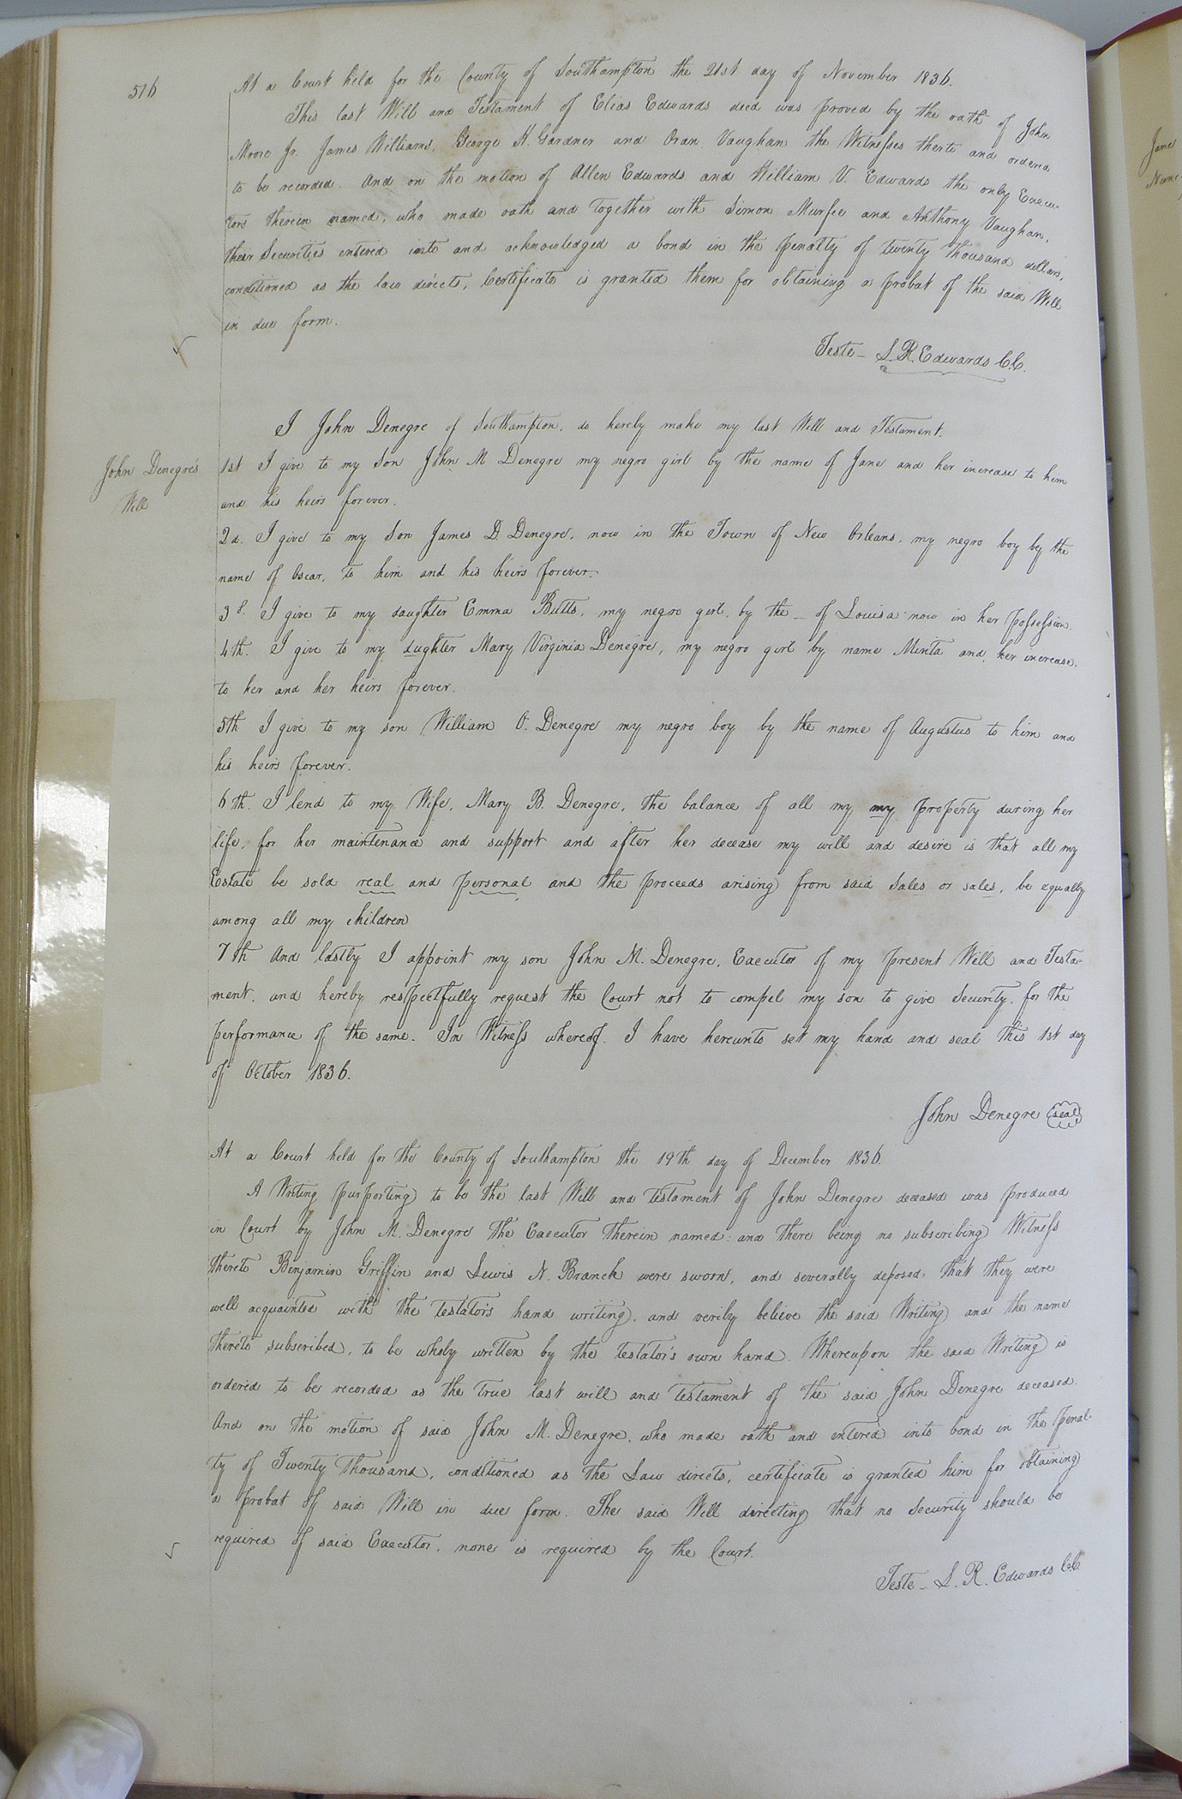 516
At a Court held for the County of Southampton the 21st day of November 1836.
This last Will and Testament of Elias Edwards decd was proved by the oath of John
Moore Jr. James Williams, George H. Gardner and Oran Vaughan the Witnesses thereto and orderd
to be recorded. And on the motion of Allen Edwards and William V. Edwards the only Execu-
tors therein named, who made oath and together with Simon Murfee and Anthony Vaughan,
their Securities entered into and acknowledged a bond in the penalty of twenty thousand dollars,
conditioned as the law directs, Certificate is granted them for obtaining a probat of the said Will
in due form.
Teste - L. R. Edwards C.C.
John Denegre's
Will
I John Denegre of Southampton, do hereby make my last Will and Testament.
1st I give to my Son John M Denegre my negro girl by the name of Jane and her increase to him
and his heirs forever.
2d. I give to my Son James D. Denegre, now in the Town of New Orleans, my negro boy by the
name of Oscar, to him and his heirs forever.
3d. I give to my daughter Emma Butts, my negro girl, by the _ of Louisa now in her possession.
4th. I give to my dughter Mary Virginia Denegre, my negro girl by name Minta and her increase,
to her and her heirs forever.
5th I give to my son William O. Denegre my negro boy by the name of Augustus to him and
his heirs forever.
6th. I lend to my Wife, Mary B. Denegre, the balance of all my my property during her
life, for her maintenance and support and after her decease my will and desire is that all my
Estate be sold real and personal and the proceeds arising from said Sales or sales, be equally
among all my children
7th And lastly I appoint my son John M. Denegre, Executor of my present Will and Testa-
ment, and hereby respectfully request the Court not to compel my son to give Security, for the
performance of the same. In Witness whereof, I have hereunto set my hand and seal this 1st day
of October 1836.
John Denegre seal
At a Court held for the County of Southampton the 19th day of December 1836.
A Writing purporting to be the last Will and testament of John Denegre deceased was produced
in Court by John M. Denegre the Executor therein named: and there being no subscribing Witness
thereto Benjamin Griffin and Lewis N. Branch were sworn, and severally deposed, that they were
well acquainted with the testators hand writing, and verily believe the said Writing and the name
thereto subscribed, to be wholy written by the testator's own hand. Whereupon the said Writing is
ordered to be recorded as the true last will and testament of the said John Denegre deceased.
And on the motion of said John M. Denegre, who made oath and entered into bond in the penal-
ty of Twenty thousand, conditioned as the Law directs, certificate is granted him for obtaining
a probat of said Will in due form. The said Will directing that no Security should be
required of said Executor, none is required by the Court.
Teste - L. R. Edwards C.C.
Jane